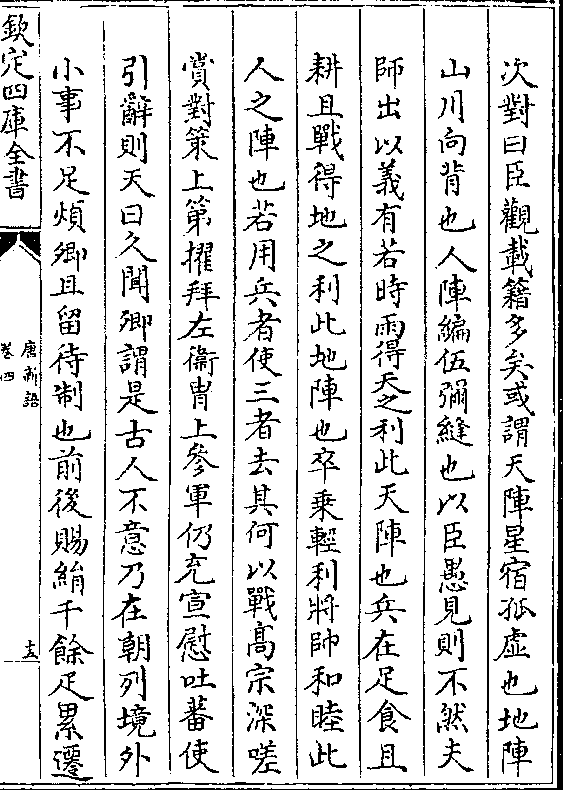 次對曰臣觀載籍多矣或謂天陣星宿孤虛也地陣
山川向背也人陣編伍彌縫也以臣愚見則不然夫
師出以義有若時雨得天之利此天陣也兵在足食且
耕且戰得地之利此地陣也卒乗輕利將帥和睦此
人之陣也若用兵者使三者去其何以戰髙宗深嗟
賞對策上第擢拜左衞胄上參軍仍充宣慰吐蕃使
引辭則天曰久聞卿謂是古人不意乃在朝列境外
小事不足煩卿且留待制也前後賜絹千餘疋累遷
欽定四庫全書
唐新語
卷四
十五